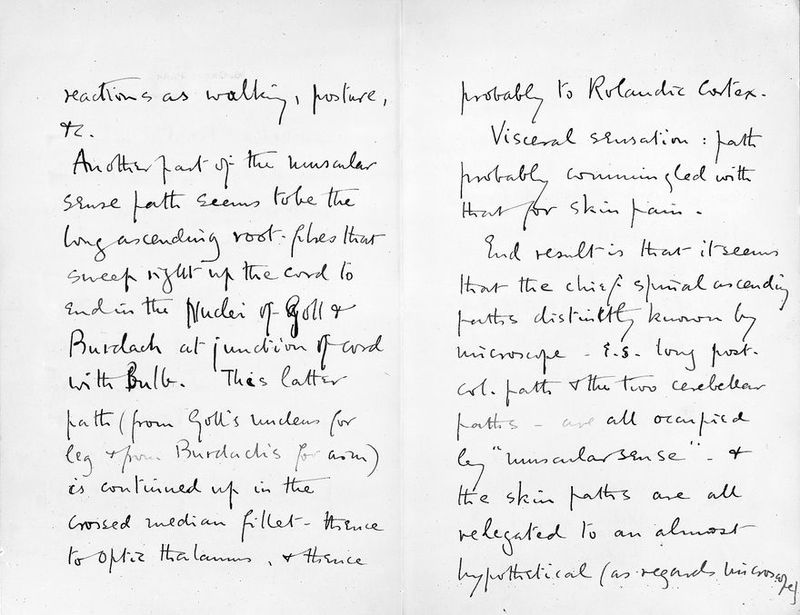 reactions as walking, posture,
&c.
Another part of the muscular
sense path seems to be the
long ascending root-fibres that
sweep right up the cord to
end in the Nuclei of Goll &
Burdach at junction of cord
with Bulb. This latter
path (from Goll's nucleus for
leg & from Burdach's for arm)
is continued up in the
crossed median fillet - thence
to optic thalamus, & thence
probably to Rolandic Cortex.
Visceral sensation : path
probably commingled with
that for skin pain.
End result is that it seems
that the chief spinal ascending
paths distinctly known by
microscope - e.g. long post-
col. path & the two cerebellar
paths - are all occupied
by "muscular sense" - &
the skin paths are all
relegated to an almost
hypothetical (as regards microscope)